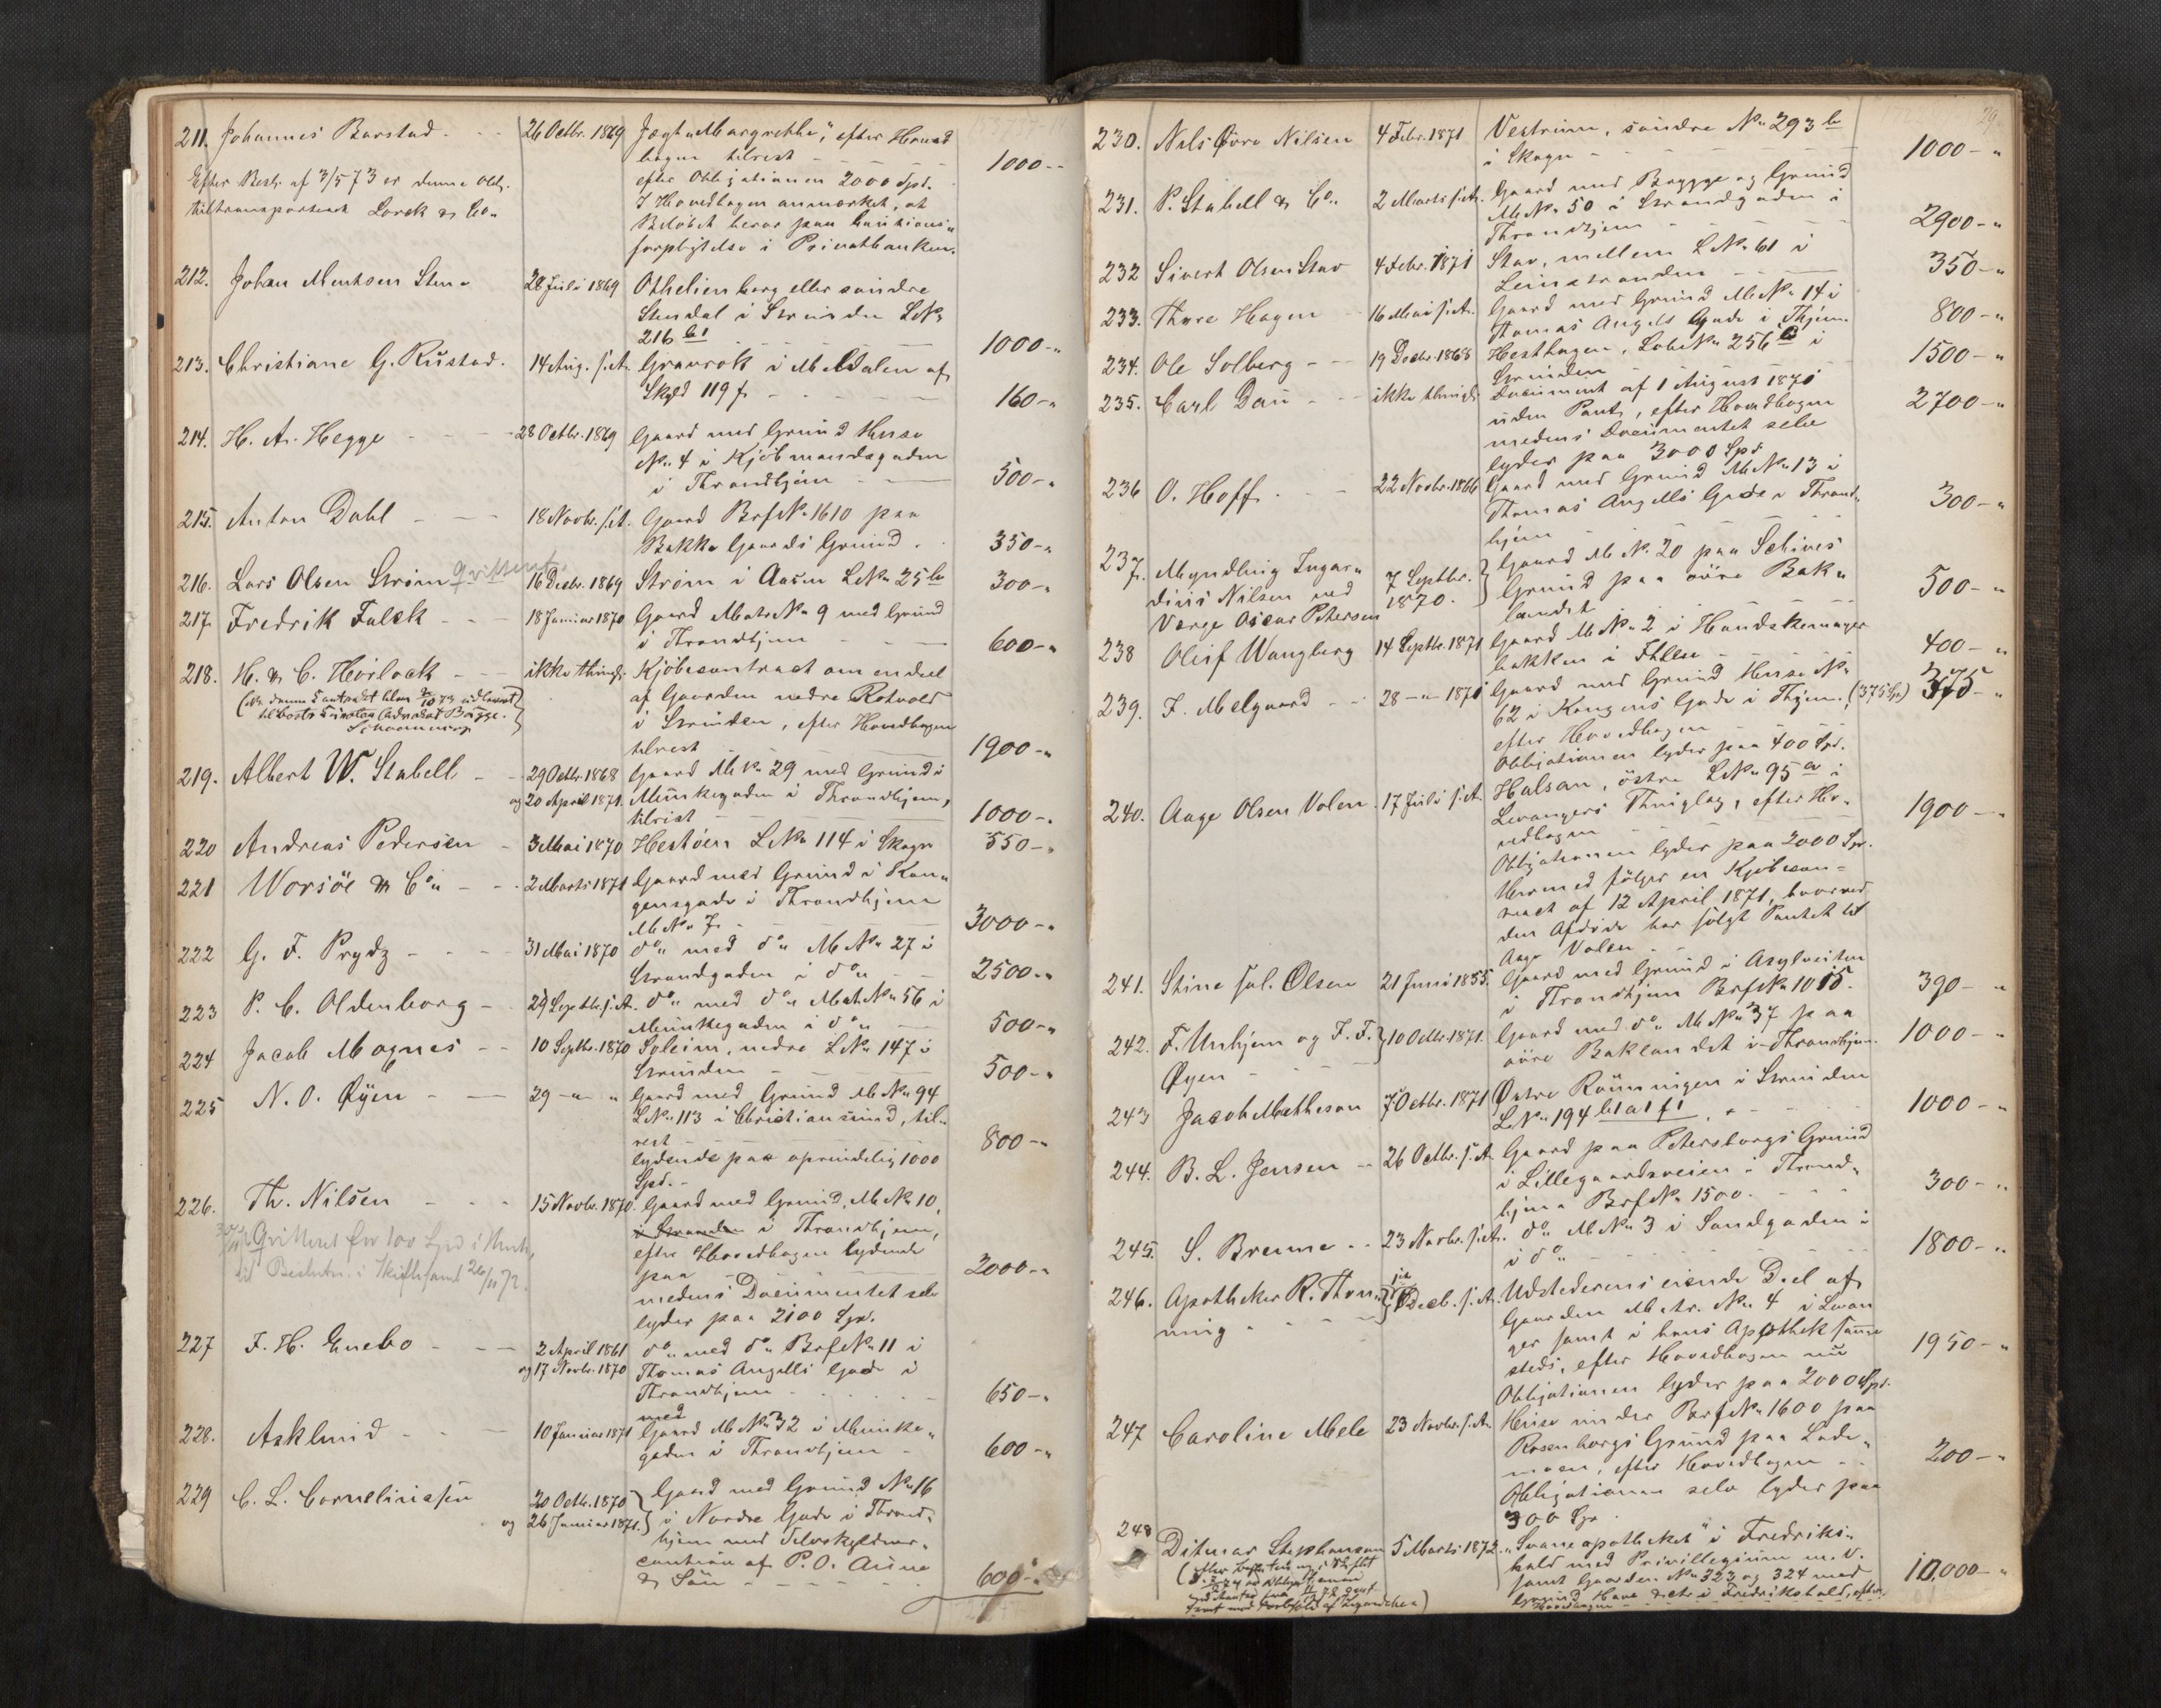 211. Johannes Barstad - - 26 Octbr. 1869 Jagt "Margrethe", efter Hoved
bogen tilrest - - 1000-"
Efter Besl. af 3/5 73 er denne Obl. efter Obligationen 2000 Spd.
tiltransporteret Lorck & Co" I Hovedbogen anmærket, at
Beløbet heror paa Cautions"
forpligtelse i Privatbanken.
212. Johan Mentsen Steen 28 Juli 1869 Othilienborg eller søndre
Stendal i Strinden LN"
216 b1 - - 1000-"
213. Christiane G. Rustad. 14 Aug. s.A. Gravrok i Meldalen af
Skyld 119 f - - 160-"
214. H. A. Hegge - - 28 Octbr. 1869 Gaard med Grund Huse
N" 4 i Kjøbmandsgaden
i Throndhjem - - 500-"
215. Anton Dahl - - 18 Novbr. s.A. Gaard BrfN" 1610 paa
Bakke Gaards Grund. 350-"
216. Lars Olsen Strøm qvitteret 16 Decbr. 1869 Strøm i Aasen LN" 25 b 300-"
217. Fredrik Falck - - 18 Januar 1870 Gaard MatrN" 9 med Grund
i Throndhjem - - 600-"
218. H. & C. Horlock - - ikke thingl. Kjøbecontract om endeel
af Gaarden nedre Rotvold
i Strinden, efter Hovedbogen
tilrest - - 1900-"
219. Albert W. Stabell - - 29 Octbr. 1868 Gaard MN" 29 med Grund i
og 20 April 1871. Munkegaden i Throndhjem,
tilrest - - 1000-"
220 Andreas Pedersen - 3 Mai 1870 Hestøen LN" 114 i Skogn 550-"
221 Worsöe & Co" - - 2 Marts 1871 Gaard med Grund i Kon"
gensgade i Throndhjem
MN" 7. - - 3000-"
222 G. F. Prydz - - 31 Mai 1870 do" med do" MN" 27 i
Strandgaden i do" - - 2500-"
223 P. C. Oldenborg - 29 Septbr. s.A. do" med do" MatN" 56 i
Munkegaden i do" - - 500-"
224 Jacob Magnes - - 10 Septbr. 1870 Soleim, nedre LN" 147 i
Strinden - - 500-"
225 N. O. Øyen - - 29 -"- " Gaard med Grund MN" 94
LN" 113 i Christiansund, til"
rest - - 800-"
lydende paa oprindelig 1000
Spd. -
226. Th. Nilsen - - 15 Novbr. 1870. Gaard med Grund, MN" 10,
i Stranden i Throndhjem,
Qvitteret for 100 Spd efter Hovedbogen lydende
paa - - 2000-"
26/11 72. medens Documentet selv
lyder paa 2100 Spd.
227 F. H. Enebo - - 2 April 1861 do" med do" BrfN" 11 i
og 17 Novbr. 1870 Thomas Angells Gade i
Throndhjem - - 650-"
228. Asklund - - 10 Januar 1871 Gaard med MN" 32 i Munke"
gaden i Throndhjem - 600-"
229 C. L. Corneliussen 20 Octb. 1870 Gaard med Grund N" 16
og 26 Januar 1871. i Nordre Gade i Thrond"
hjem med Selvskyldner"
caution af P. O. Aune
& Søn - - 600-"
29.
230. Nils Øvre Nilsen 4 Febr. 1871 Vestrum, søndre N" 293 b
i Skogn - - 1000-"
231. P. Stabell & Co" 2 Marts s.A. Gaard med Brygge og Grund
MN" 50 i Strandgaden i
Throndhjem - - 2900-"
232 Sivert Olsen Stav 4 Febr. 1871 Stav, mellem LN" 61 i
Leinstranden - - 350-"
233. Thore Hagen - 16 Mai s.A. Gaard med Grund MN" 14 i
Thomas Angels Gade i Thjem. 800-"
234. Ole Solberg - - 19 Decbr. 1868 Hesthagen, LøbeN" 256 i
Strinden - - 1500-"
235. Carl Dau - - ikke thingl. Document af 1 August 1870
uden Pant, efter Hovedbogen 2700-"
medens Documentet selv
lyder paa 3000 Spd.
236 O. Hoff. - - 22 Novbr. 1866 Gaard med Grund MN" 13 i
Thomas Angells Gade i Thrond"
hjem - - 300-"
237. Myndling Ingar" 7 Septbr. Gaard MN" 20 paa Schives
dius Nilsen ved 1870. Grund paa øvre Bak"
Værge Oscar Petersen landet - - 500-"
238 Oluf Wangberg 14 Septbr. 1871 Gaard MN" 2 i Handskemager
bakken i Ihlen - 400-"
239. F. Melgaard - - 28 -"- 1870 Gaard med Grund Huse N"
62 i Kongens Gade i Thjem. (375 Spd) 375-"
efter Hovedbogen - -
Obligationen lyder paa 400 Spd.
240. Aage Olsen Valen 17 Juli s.A. Halsan, østre LN" 95 a i
Levangers Thinglag, efter Ho"
vedbogen - - 1900-"
Obligationen lyder paa 2000 Spd.
Hermed følger en Kjøbecon=
tract af 12 April 1871, hvorved
den Afdøde har solgt Pantet til
Aage Valen -
241. Stine sal. Olsen 21 Juni 1855. Gaard med Grund i Asylveiten
i Throndhjem BrfN" 1015. 390-"
242. F. Unhjem og F. F. 10 Octbr. 1871. Gaard med do" MN" 37 paa
Øyen - - øvre Baklandet i Throndhjem. 1000-"
243 Jacob Mathesen 7 Octbr. 1871 Østre Rønningen i Strinden
LN" 194 b1 a1 f1 - - 1000-"
244. B. L. Jensen - - 26 Octbr. s.A. Gaard paa Petersborgs Grund
i Lillegaardsveien i Thrond"
hjem BrfN" 1500. - - 300-"
245. S. Brenne - - 23 Novbr. s.A. do" MN" 3 i Sandgaden i
i do" - - 1800-"
246. Apotheker R. Thon" Decb. s.A. Udstederens eiende Deel af
ning - - Gaarden Matr. N" 4 i Levan
ger samt i hans Apothek samme
steds, efter Hovedbogen nu 1950-"
Obligationen lyder paa 2000 Spd.
247 Caroline Mele 23 Novbr. s.A. Huse under BrfN" 1600 paa
Rosenborgs Grund paa Lade"
moen, efter Hovedbogen - - 200-"
Obligationen selv lyder paa
300 Spd.
248 Ditmar Stephansen 5 Marts 1872. "Svaneapotheket" i Fredriks"
hald med Privillegium m.V.
samt Gaarden N" 323 og 324 med 10,000-"
Grund Have i Fredrikshald, efter
Hovedbogen